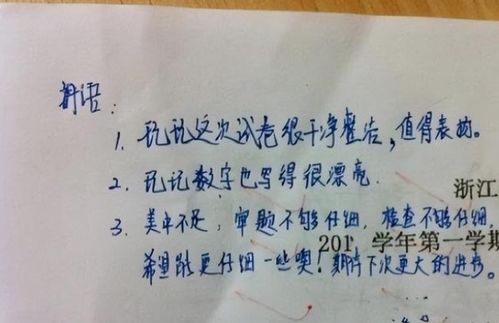 评语:
1. 玩玩这次试卷很干净整洁,值得表扬。
2. 玩玩数字也写得很漂亮
3. 美中不足,审题不够仔细,检查不够仔细,
浙江
201 学年第一学期
希望能更仔细一些噢!期待下次更大的进步。